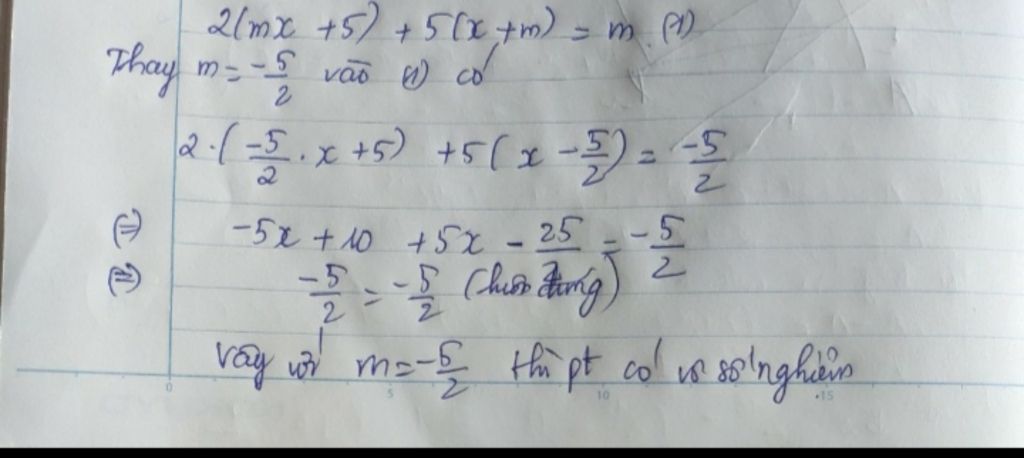 2(mx + 5) + 5(x + m) = m. (1)
Thay m = -5/2 vào (1) có
2·(-5/2 . x + 5) + 5(x - 5/2) = -5/2
(=) -5x + 10 + 5x - 25/2 = -5/2
(=) -5/2 = -5/2 (luôn đúng)
Vậy với m = -5/2 thì pt có vô số nghiệm
0 5 10 15